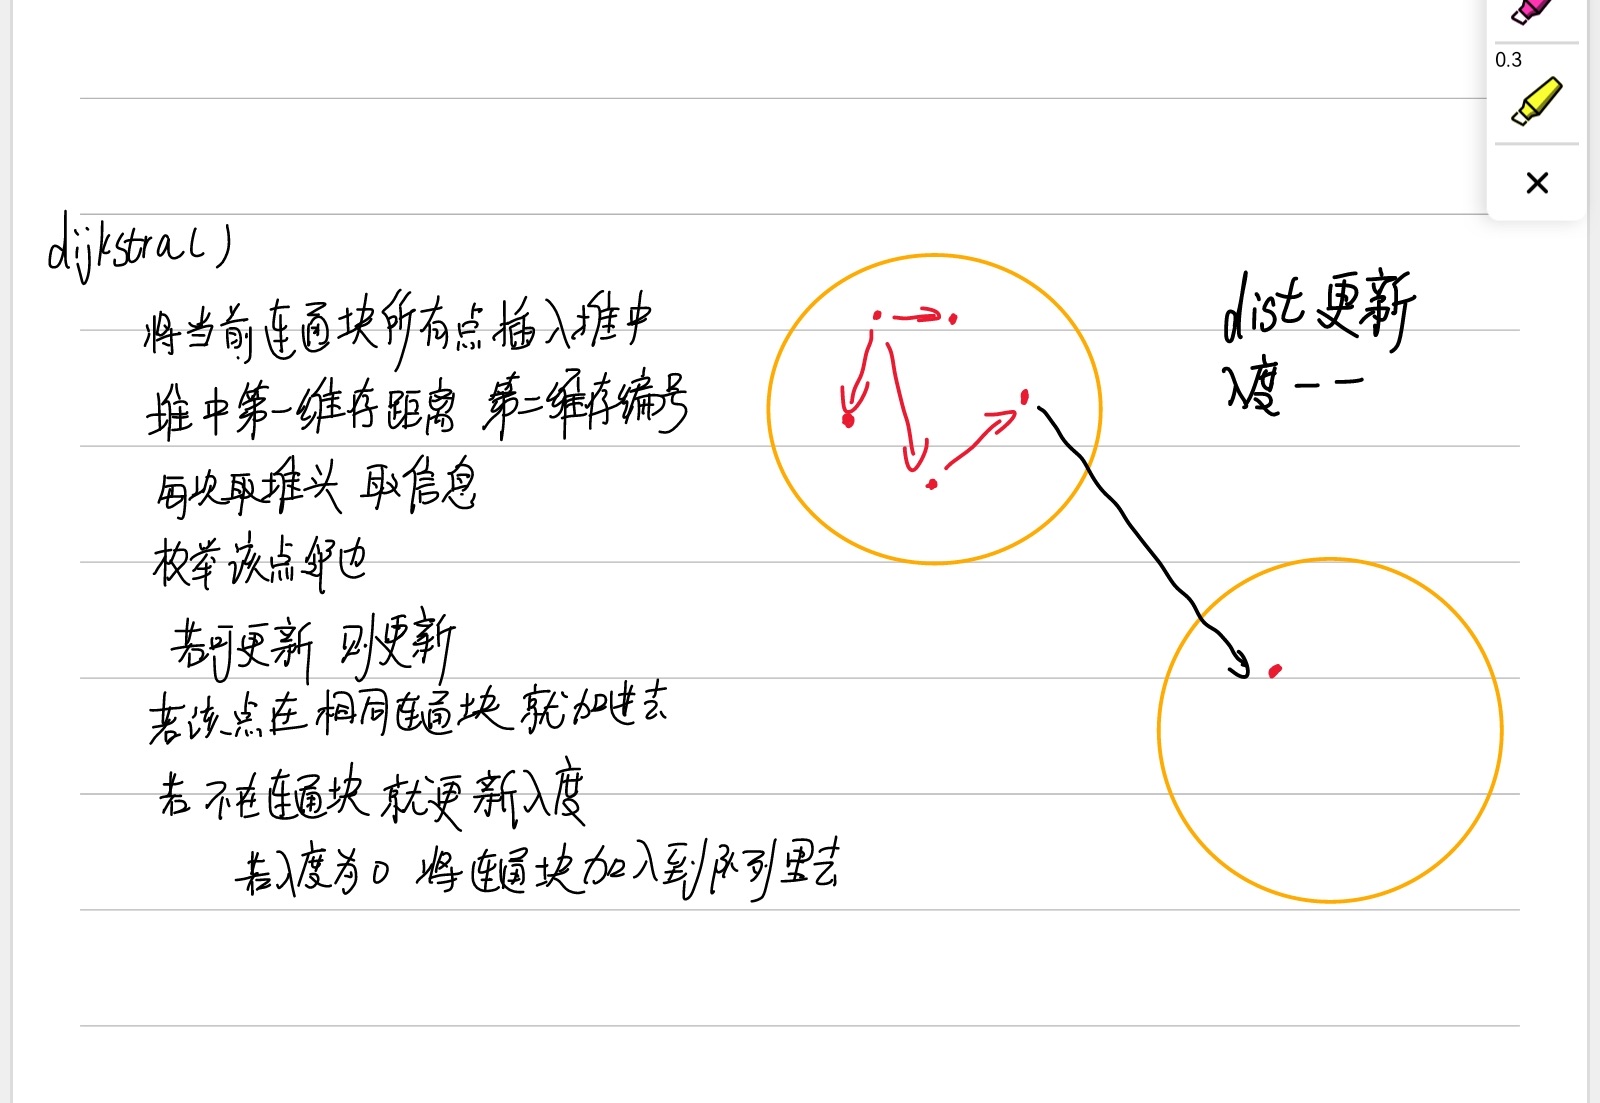 0.3
dijkstra()
将当前连通块所有点插入堆中
堆中第一维存距离 第二维存编号
每次取堆头 取信息
枚举该点邻边
若可更新 则更新
若该点在相同连通块 就加进去
若不在连通块 就更新入度
若入度为0 将连通块加入到队列里去
dist更新
入度--